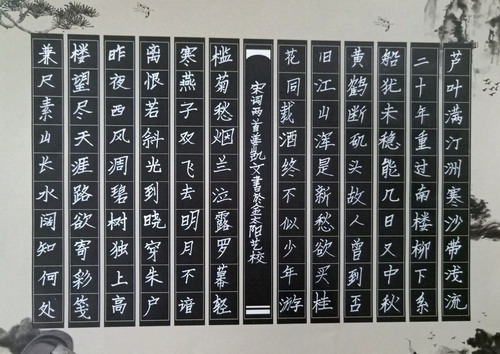 芦叶满汀洲寒沙带浅流
二十年重过南楼柳下系
船犹未稳能几日又中秋
黄鹤断矶头故人曾到否
旧江山浑是新愁欲买桂
花同载酒终不似少年游
宋词两首 凯文書於金太阳艺校
槛菊愁烟兰泣露罗幕轻
寒燕子双飞去明月不谙
离恨若斜光到晓穿朱户
昨夜西风凋碧树独上高
楼望尽天涯路欲寄彩笺
兼尺素山长水阔知何处